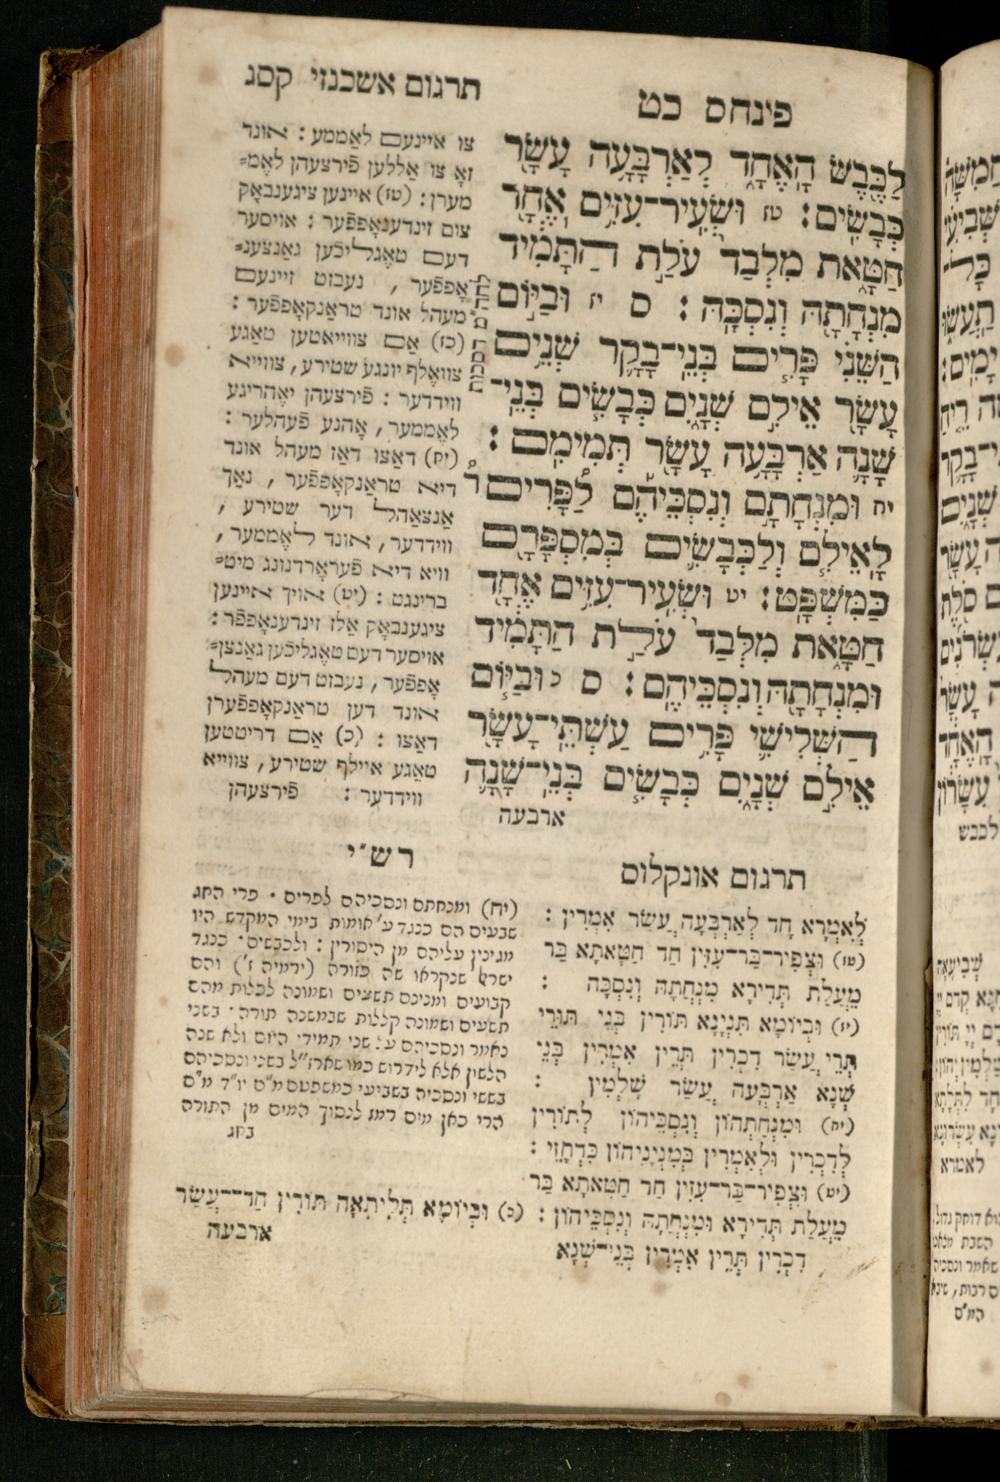 פינחס כט
תרגום אשכנזי קסג
לַכֶּבֶשׂ הָאֶחָד לְאַרְבָּעָה עָשָׂר
כְּבָשִׂים: טז וּשְׂעִיר־עִזִּים אֶחָד
חַטָּאת מִלְּבַד עֹלַת הַתָּמִיד
מִנְחָתָהּ וְנִסְכָּהּ: ס יז וּבַיּוֹם
הַשֵּׁנִי פָּרִים בְּנֵי־בָקָר שְׁנֵים
עָשָׂר אֵילִם שְׁנָיִם כְּבָשִׂים בְּנֵי־
שָׁנָה אַרְבָּעָה עָשָׂר תְּמִימִם:
יח וּמִנְחָתָם וְנִסְכֵּיהֶם לַפָּרִים
לָאֵילִם וְלַכְּבָשִׂים בְּמִסְפָּרָם
כַּמִּשְׁפָּט: יט וּשְׂעִיר־עִזִּים אֶחָד
חַטָּאת מִלְּבַד עֹלַת הַתָּמִיד
וּמִנְחָתָהּ וְנִסְכֵּיהֶם: ס כ וּבַיּוֹם
הַשְּׁלִישִׁי פָּרִים עַשְׁתֵּי־עָשָׂר
אֵילִם שְׁנָיִם כְּבָשִׂים בְּנֵי־שָׁנָה
ארבעה
צו איינעם לאַממע: אונד
זאָ צו אַללען פֿירצעהן לאֶמ=
מערן: (טז) איינען ציגענבאָק
צום זינדענאָפּפֿער: אויסער
דעם טאֶגליכֿען גאַנצענ=
אָפּפֿער, נעבזט זיינעם
מעהל אונד טראַנקאָפּפֿער:
אַם צווייאטען טאַגע
צוואֶלף יונגע שטירע, צווייא
ווידדער: פֿירצעהן יאֶהריגע
לאֶממער, אָהנע פֿעהלער:
(יח) דאַצו דאַז מעהל אונד
דיא טראַנקאָפּפֿער, נאַך
אַנצאַהל דער שטירע,
ווידדער, אונד לאֶממער,
וויא דיא פֿעראָרדנונג מיט=
ברינגט: (יט) אויך איינען
ציגענבאָק אַלז זינדענאָפּפֿר:
אויסער דעם טאֶגליכֿען גאַנצן=
אָפּפֿער, נעבזט דעם מעהל
אונד דען טראַנקאָפּפֿערן
דאַצו: (כ) אַם דריטטען
טאַגע איילף שטירע, צווייא
ווידדער: פֿירצעהן
תרגום אונקלוס
לְאִמְּרָא חָד לְאַרְבְּעָה עֲשַׂר אִמְּרִין:
(טז) וּצְפִיר־בַּר־עִזִּין חַד חַטָּאתָא בַּר
מֵעֲלַת תְּדִירָא מִנְחֲתָהּ וְנִסְכָּהּ:
(יז) וּבְיוֹמָא תִּנְיָנָא תּוֹרִין בְּנֵי תּוֹרֵי
תְּרֵי עֲשַׂר דִּכְרִין תְּרֵין אִמְּרִין בְּנֵי
שְׁנָא אַרְבְּעָה עֲשַׂר שַׁלְמִין:
(יח) וּמִנְחַתְהוֹן וְנִסְכֵּיהוֹן לְתוֹרִין
לְדִכְרִין וּלְאִמְּרִין בְּמִנְיָנֵיהוֹן כִּדְחָזֵי:
(יט) וּצְפִיר־בַּר־עִזִּין חַד חַטָּאתָא בַּר
מֵעֲלַת תְּדִירָא וּמִנְחֲתָהּ וְנִסְכֵּיהוֹן: (כ) וּבְיוֹמָא תְּלִיתָאָה תּוֹרִין חַד־עֲשַׂר
דִּכְרִין תְּרֵין אִמְּרִין בְּנֵי־שְׁנָא
ארבעה
רש"י
(יח) ומנחתם ונסכיהם לפרים · פרי החג
שבעים הם כנגד ע' אומות בימי המקדש היו
מגינין עליהם מן היסורין: ולכבשים · כנגד
ישראל שנקראו שה פזורה (ירמיה ז') והם
קבועים ומנינם תשעים ושמונה לכלות מהם
תשעים ושמונה קללות שבמשנה תורה · בשני
נאמר ונסכיהם על שני תמידי היום ולא שנה
הלשון אלא לידרוש כמו שארז"ל בשני ונסכיהם
בששי ונסכיה בשביעי כמשפטם מ"ם יו"ד מ"ם
הרי כאן מים רמז לנסוך המים מן התורה
בחג